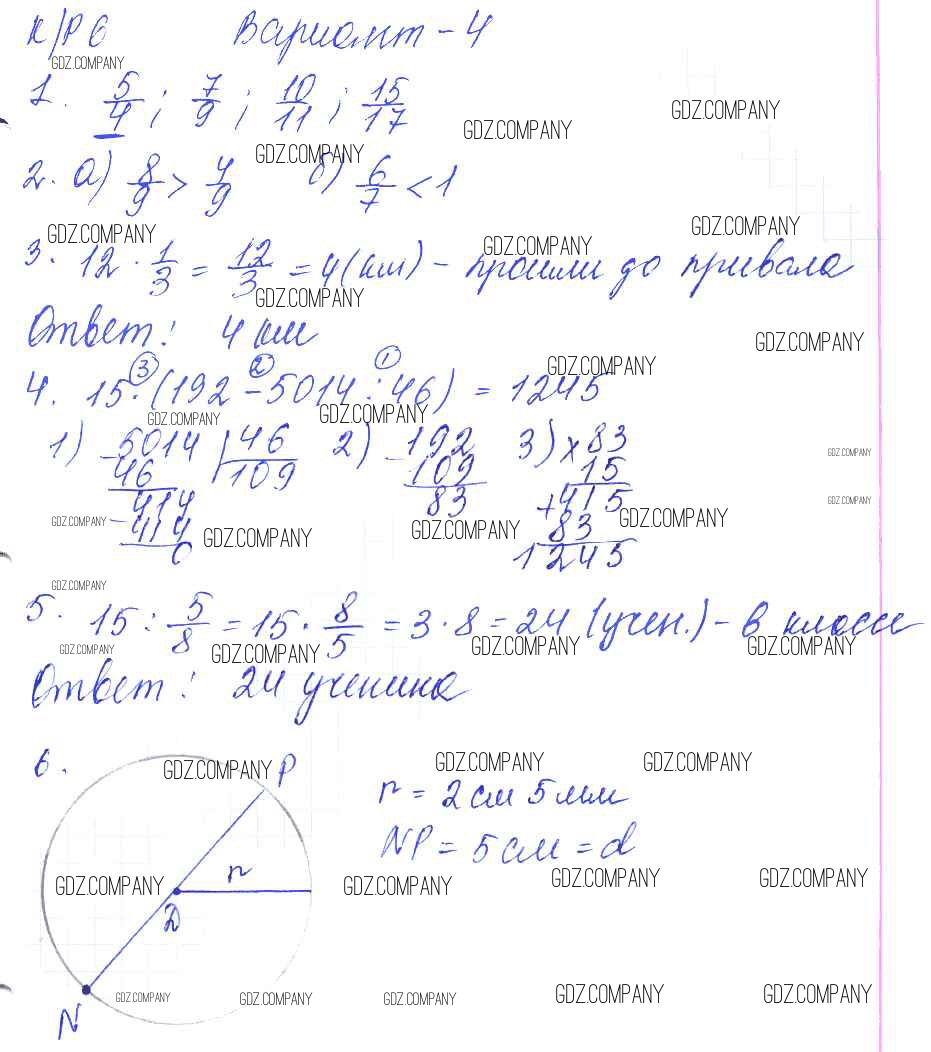 К/Р 6 Вариант - 4
GDZ.COMPANY
1. 5/4 ; 7/9 ; 10/11 ; 15/17
GDZ.COMPANY
GDZ.COMPANY
GDZ.COMPANY
2. а) 8/9 > 4/9 б) 6/7 < 1
GDZ.COMPANY
GDZ.COMPANY
GDZ.COMPANY
3. 12 · 1/3 = 12/3 = 4 (км) - прошли до привала
GDZ.COMPANY
Ответ: 4 км
GDZ.COMPANY
GDZ.COMPANY
3 2 1
4. 15 · (192 - 5014 : 46) = 1245
GDZ.COMPANY GDZ.COMPANY
1) 5014 46 2) 192 3) × 83
46 109 109 15
GDZ.COMPANY
- 414 83 + 415
GDZ.COMPANY
414 83
GDZ.COMPANY GDZ.COMPANY GDZ.COMPANY GDZ.COMPANY
0 1245
GDZ.COMPANY
5. 15 : 5/8 = 15 · 8/5 = 3 · 8 = 24 (учен.) - в классе
GDZ.COMPANY GDZ.COMPANY GDZ.COMPANY GDZ.COMPANY
Ответ: 24 ученика
6.
GDZ.COMPANY P GDZ.COMPANY GDZ.COMPANY
r = 2 см 5 мм
NP = 5 см = d
r
GDZ.COMPANY GDZ.COMPANY GDZ.COMPANY GDZ.COMPANY
D
GDZ.COMPANY GDZ.COMPANY GDZ.COMPANY GDZ.COMPANY GDZ.COMPANY
N